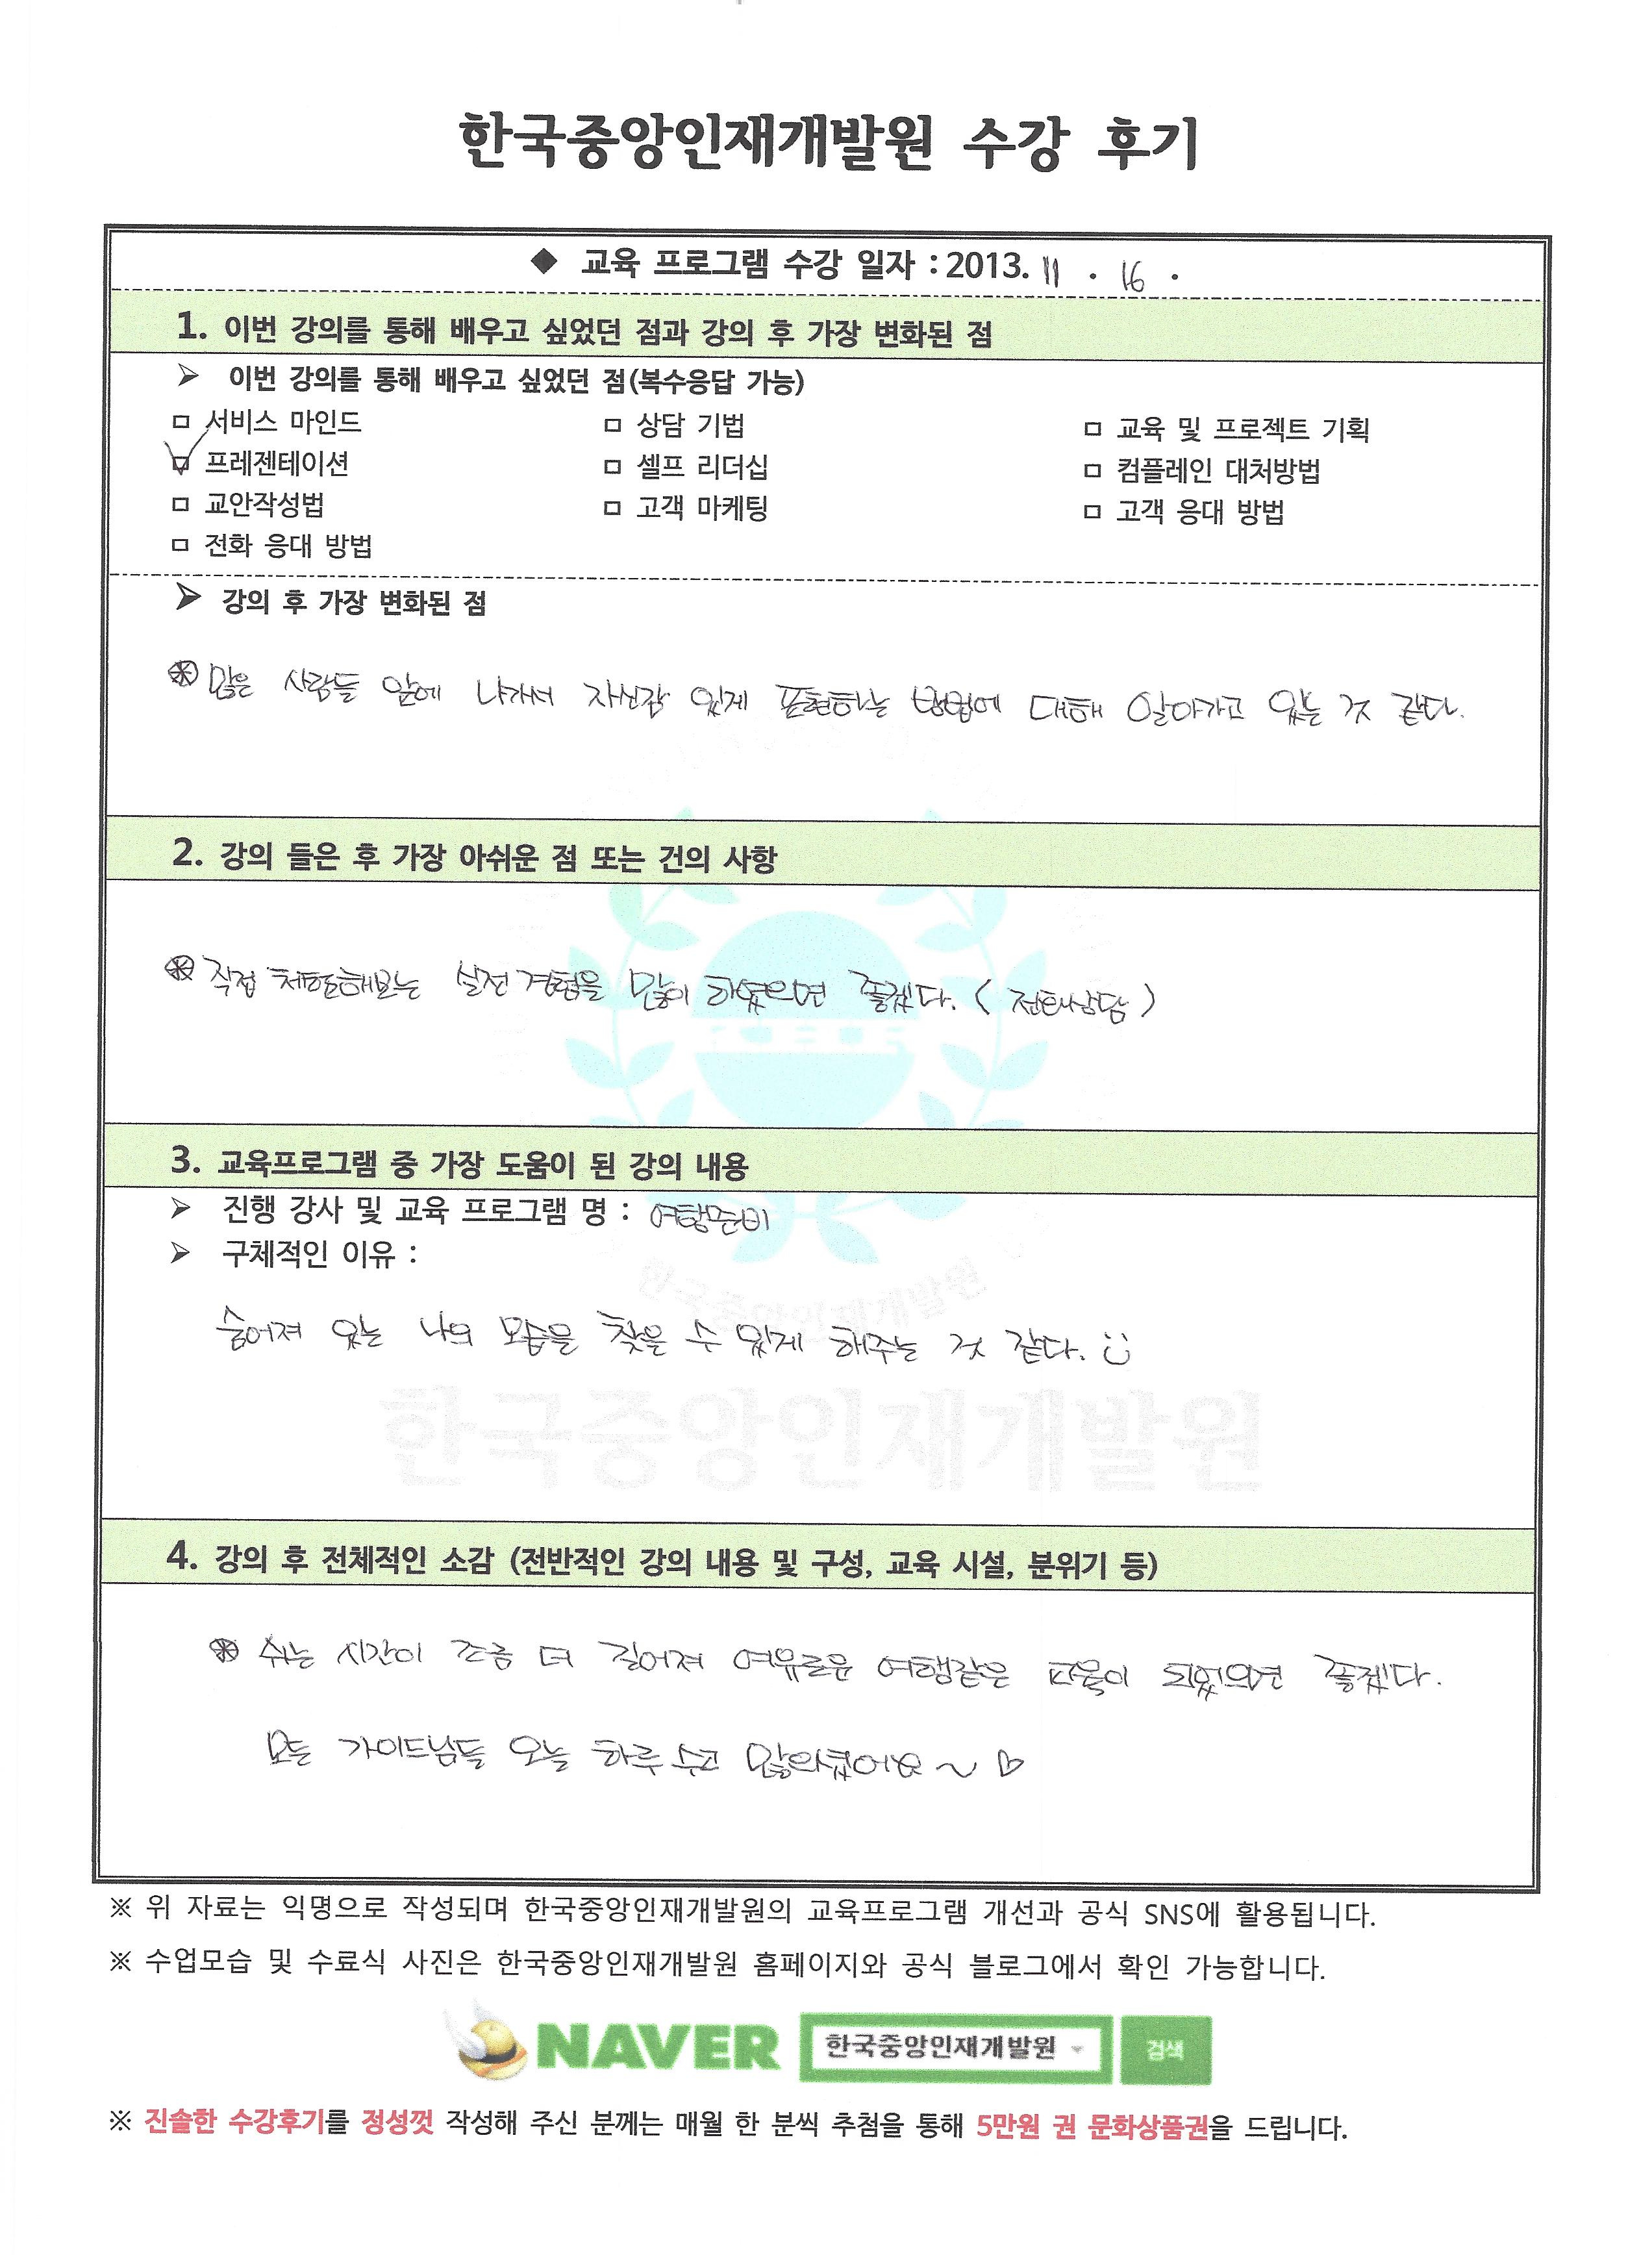 한국중앙인재개발원 수강 후기
◆ 교육 프로그램 수강 일자 : 2013. 11 . 16 .
1. 이번 강의를 통해 배우고 싶었던 점과 강의 후 가장 변화된 점
➢ 이번 강의를 통해 배우고 싶었던 점(복수응답 가능)
□ 서비스 마인드 □ 상담 기법 □ 교육 및 프로젝트 기획
☑ 프레젠테이션 □ 셀프 리더십 □ 컴플레인 대처방법
□ 교안작성법 □ 고객 마케팅 □ 고객 응대 방법
□ 전화 응대 방법
➢ 강의 후 가장 변화된 점
⊛ 많은 사람들 앞에 나가서 자신감 있게 표현하는 방법에 대해 알아가고 있는 것 같다.
2. 강의 들은 후 가장 아쉬운 점 또는 건의 사항
⊛ 직접 체험해보는 실전경험을 많이 하였으면 좋겠다. (전화상담)
3. 교육프로그램 중 가장 도움이 된 강의 내용
➢ 진행 강사 및 교육 프로그램 명 : 여행준비
➢ 구체적인 이유 :
숨어져 있는 나의 모습을 찾을 수 있게 해주는 것 같다. :)
한국중앙인재개발원
한국중앙인재개발원
4. 강의 후 전체적인 소감 (전반적인 강의 내용 및 구성, 교육 시설, 분위기 등)
⊛ 쉬는 시간이 조금 더 길어져 여유로운 여행같은 교육이 되었으면 좋겠다.
모든 가이드님들 오늘 하루 수고 많으셨어요~ ♡
※ 위 자료는 익명으로 작성되며 한국중앙인재개발원의 교육프로그램 개선과 공식 SNS에 활용됩니다.
※ 수업모습 및 수료식 사진은 한국중앙인재개발원 홈페이지와 공식 블로그에서 확인 가능합니다.
NAVER 한국중앙인재개발원 검색
※ 진솔한 수강후기를 정성껏 작성해 주신 분께는 매월 한 분씩 추첨을 통해 5만원 권 문화상품권을 드립니다.